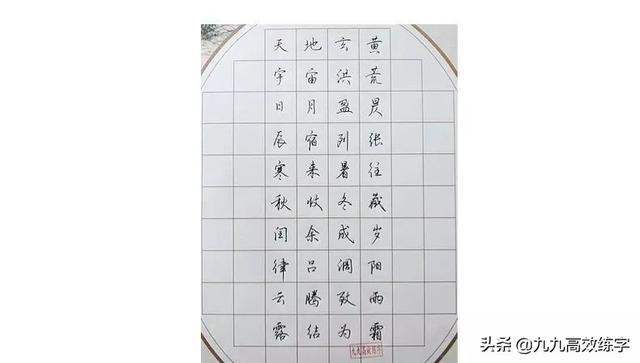 天地玄黄
宇宙洪荒
日月盈昃
辰宿列张
寒来暑往
秋收冬藏
闰余成岁
律吕调阳
云腾致雨
露结为霜
头条 @九九高效练字